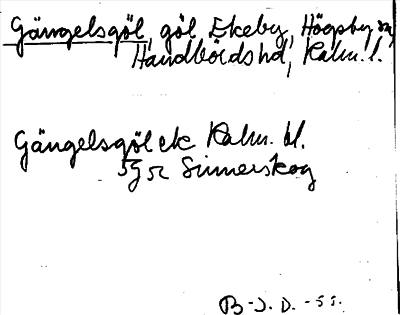 Gängelsgöl, göl Ekeby, Högsby sn,
Handbörds hd, Kalm. l.
Gängelsgöl ek Kalm. bl.
5g 5c Sinnerskog
B-J. D. -55.